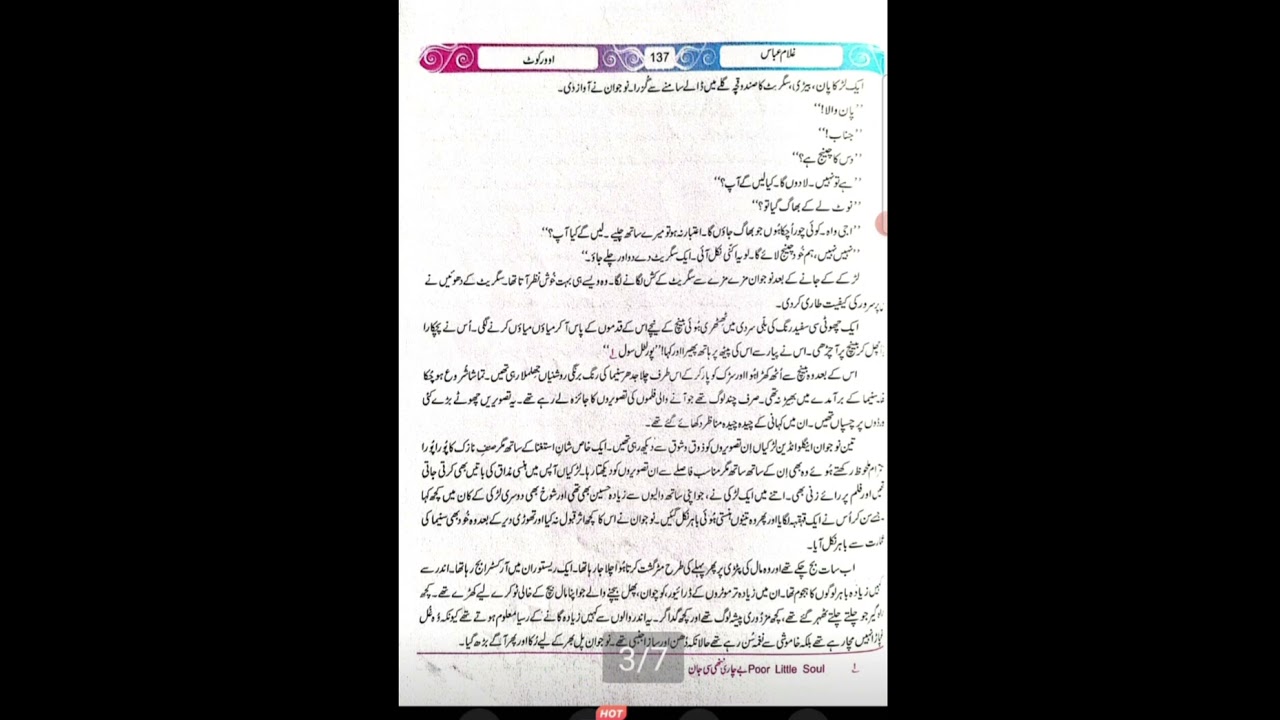 غلام عباس
137
اوورکوٹ
ایک لڑکا پان، بیڑی، سگریٹ کا صندوقچہ گلے میں ڈالے سامنے سے گزرا۔ نوجوان نے آواز دی۔
’’پان والا!‘‘
’’جناب!‘‘
’’دس کا چینج ہے؟‘‘
’’ہے تو نہیں۔ لا دوں گا۔ کیا لیں گے آپ؟‘‘
’’نوٹ لے کے بھاگ گیا تو؟‘‘
’’اجی واہ۔ کوئی چور اُچکا ہوں جو بھاگ جاؤں گا۔ اعتبار نہ ہو تو میرے ساتھ چلیے۔ لیں گے کیا آپ؟‘‘
’’نہیں نہیں، ہم خُود چینج لائے گا۔ لو یہ اکنی نکل آئی۔ ایک سگریٹ دے دو اور چلے جاؤ۔‘‘
لڑکے کے جانے کے بعد نوجوان مزے مزے سے سگریٹ کے کش لگانے لگا۔ وہ ویسے ہی بہت خُوش نظر آتا تھا۔ سگریٹ کے دھوئیں نے
پر سرور کی کیفیت طاری کر دی۔
ایک چھوٹی سی سفید رنگ کی بلی سردی میں ٹھٹھری ہُوئی بینچ کے نیچے اس کے قدموں کے پاس آ کر میاؤں میاؤں کرنے لگی۔ اُس نے پچکارا
اُچھل کر بینچ پر آ چڑھی۔ اس نے پیار سے اس کی پیٹھ پر ہاتھ پھیرا اور کہا! ’’پور لٹل سول‘‘ ؎۱
اس کے بعد وہ بینچ سے اُٹھ کھڑا ہُوا اور سڑک کو پار کر کے اس طرف چلا جدھر سنیما کی رنگ برنگی روشنیاں جھلملا رہی تھیں۔ تماشا شُروع ہو چکا
سنیما کے برآمدے میں بھیڑ نہ تھی۔ صرف چند لوگ تھے جو آنے والی فلموں کی تصویروں کا جائزہ لے رہے تھے۔ یہ تصویریں چھوٹے بڑے کئی
بورڈوں پر چسپاں تھیں۔ ان میں کہانی کے چیدہ چیدہ مناظر دکھائے گئے تھے۔
تین نوجوان اینگلو انڈین لڑکیاں ان تصویروں کو ذوق و شوق سے دیکھ رہی تھیں۔ ایک خاص شانِ استغنا کے ساتھ مگر صنفِ نازک کا پُورا پُورا
ملحُوظ رکھتے ہُوئے وہ بھی ان کے ساتھ ساتھ مگر مناسب فاصلے سے ان تصویروں کو دیکھتا رہا۔ لڑکیاں آپس میں ہنسی مذاق کی باتیں بھی کرتی جاتی
تھیں اور فلم پر رائے زنی بھی۔ اتنے میں ایک لڑکی نے، جو اپنی ساتھ والیوں سے زیادہ حسین بھی تھی اور شوخ بھی دوسری لڑکی کے کان میں کچھ کہا
جسے سن کر اُس نے ایک قہقہہ لگایا اور پھر وہ تینوں ہنستی ہُوئی باہر نکل گئیں۔ نوجوان نے اس کا کچھ اثر قبول نہ کیا اور تھوڑی دیر کے بعد وہ خُود بھی سنیما کی
عمارت سے باہر نکل آیا۔
اب سات بج چکے تھے اور وہ مال کی پٹڑی پر پھر پہلے کی طرح مٹر گشت کرتا ہُوا چلا جا رہا تھا۔ ایک ریستوران میں آرکسٹرا بج رہا تھا۔ اندر سے
کہیں زیادہ باہر لوگوں کا ہجوم تھا۔ ان میں زیادہ تر موٹروں کے ڈرائیور، کوچوان، پھل بیچنے والے جو اپنا مال بیچ کے خالی ٹوکرے لیے کھڑے تھے۔ کچھ
راہگیر جو چلتے چلتے ٹھہر گئے تھے، کچھ مزدُوری پیشہ لوگ تھے اور کچھ گداگر۔ یہ اندر والوں سے کہیں زیادہ گانے کے رسیا معلوم ہوتے تھے کیونکہ وُہ غُل
غپاڑا نہیں مچا رہے تھے بلکہ خاموشی سے نغمہ سُن رہے تھے حالانکہ دُھن اور ساز اجنبی تھے۔ نوجوان پل بھر کے لیے رُکا اور پھر آگے بڑھ گیا۔
3/7
؎۱ Poor Little Soul بے چاری ننھی سی جان
HOT